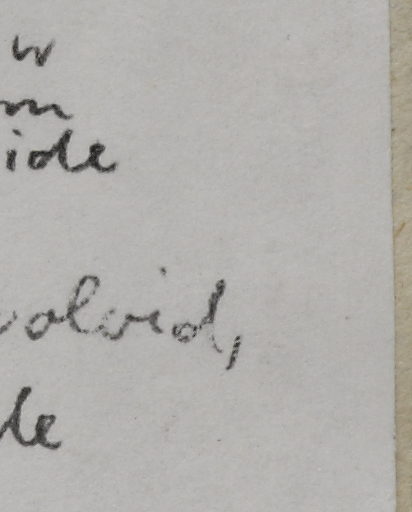 w
m
ide
volvid,
le